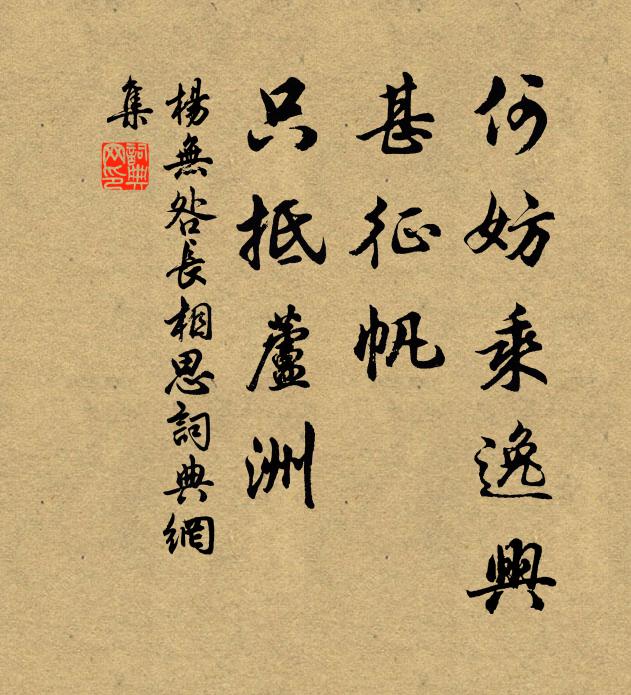 何妨乘逸興
甚征帆
只抵蘆洲
楊無咎長相思詞典網
集
詞典
网印